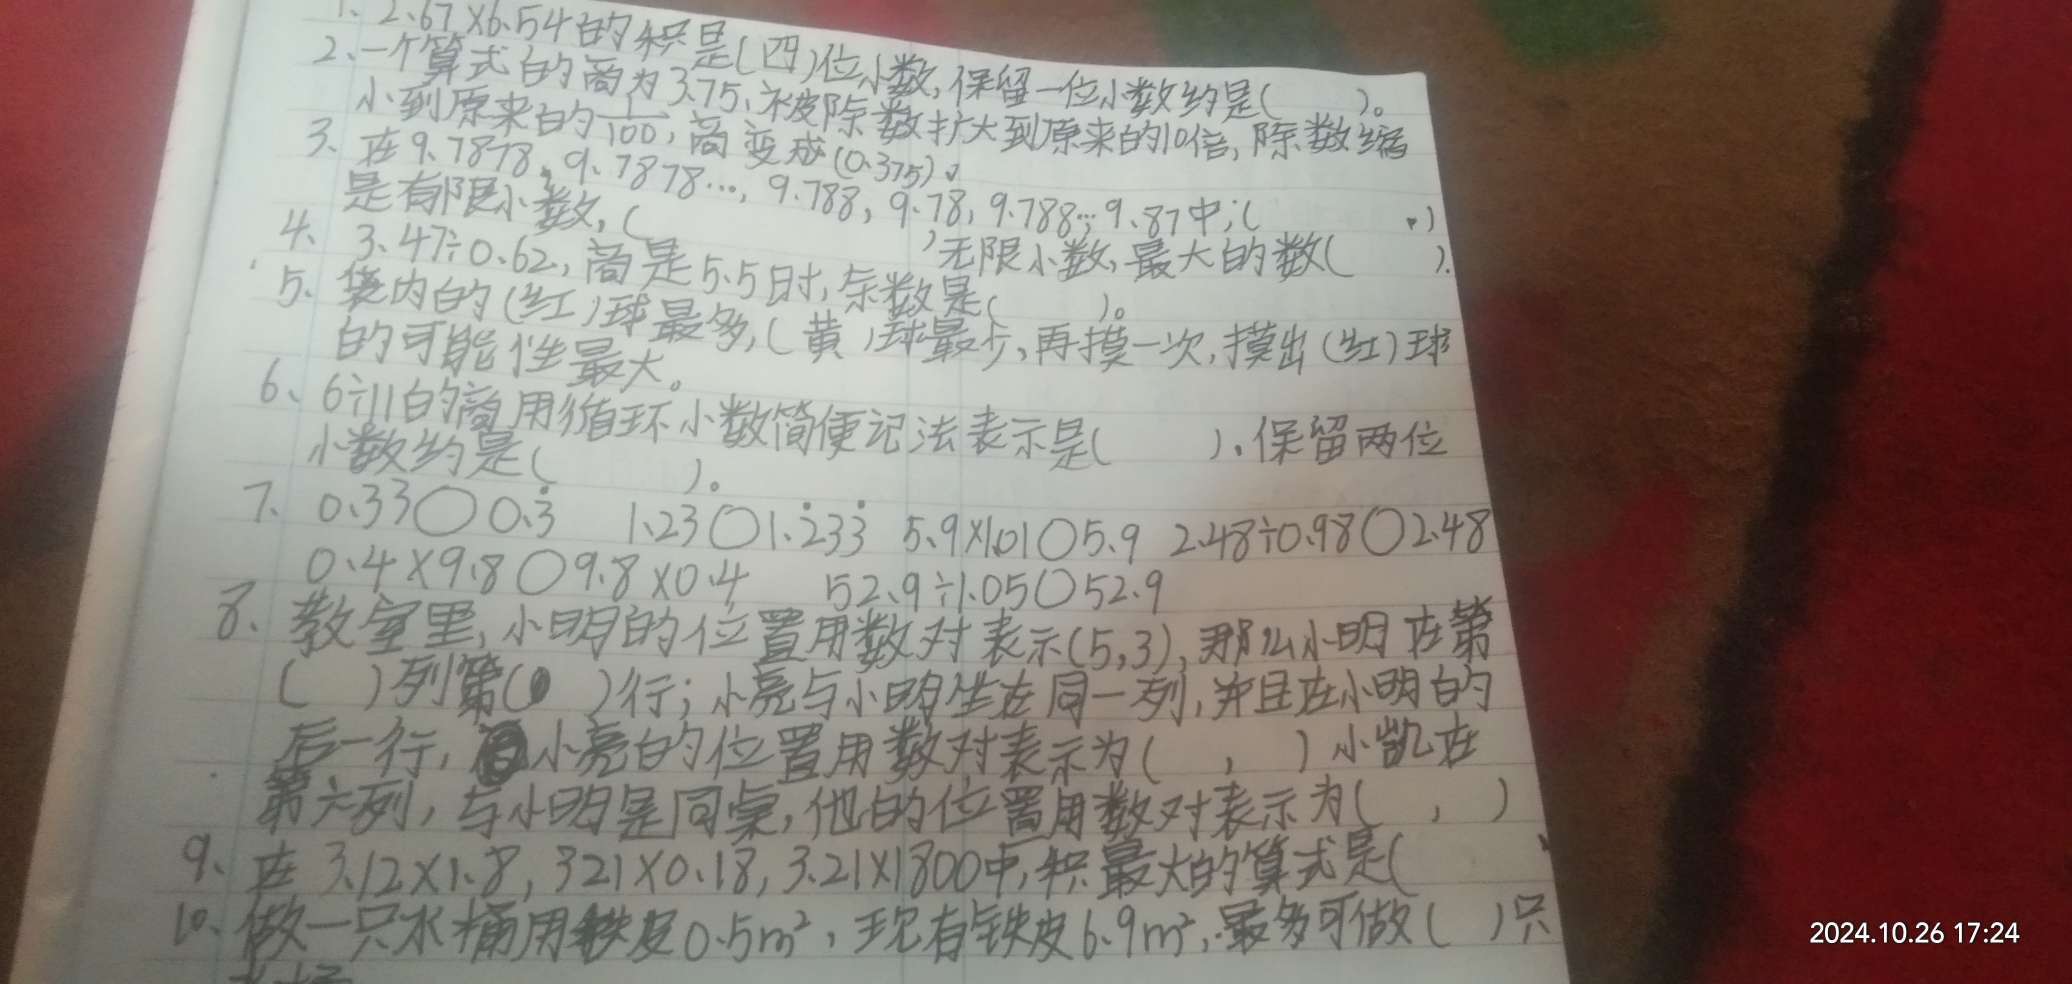 1、2.67×6.54的积是(四)位小数,保留一位小数约是(  )。
2、一个算式的商为3.75,被除数扩大到原来的10倍,除数缩
小到原来的1/100,商变成(0.375)。
3、在9.7878,9.7878…,9.788,9.78,9.788…,9.87中,(  )
是有限小数,(  )无限小数,最大的数(  ).
4、3.47÷0.62,商是5.5时,余数是(  )。
5、袋内的(红)球最多,(黄)球最少,再摸一次,摸出(红)球
的可能性最大。
6、6÷11的商用循环小数简便记法表示是(  ),保留两位
小数约是(  )。
7、0.33○0.3̇ 1.23○1.2̇33̇ 5.9×1.01○5.9 2.48÷0.98○2.48
0.4×9.8○9.8×0.4 52.9÷1.05○52.9
8、教室里,小明的位置用数对表示(5,3),那么小明在第
(  )列第(  )行;小亮与小明坐在同一列,并且在小明的
后一行,小亮的位置用数对表示为( , )小凯在
第六列,与小明是同桌,他的位置用数对表示为( , )
9、在3.12×1.8,321×0.18,3.21×1800中,积最大的算式是(
10、做一只水桶用铁皮0.5m²,现有铁皮6.9m²,最多可做( )只
2024.10.26 17:24